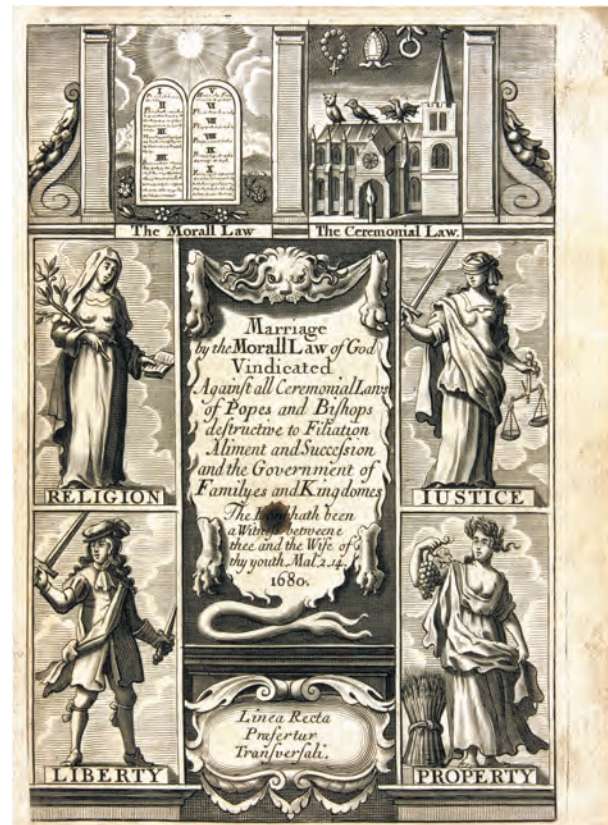 I V
II VI
VII
VIII
III IX
IIII X
The Morall Law The Ceremonial Law.
Marriage
by the Morall Law of God
Vindicated
Againſt all Ceremonial Laws
of Popes and Biſhops
deſtructive to Filiation
Aliment and Succeſsion
and the Government of
Familyes and Kingdomes
The hath been
a Witneſs betweene
thee and the Wife of
thy youth. Mal. 2. 14.
1680.
RELIGION
IUSTICE
LIBERTY
PROPERTY
Linea Recta
Prefertur
Tranſverſali.